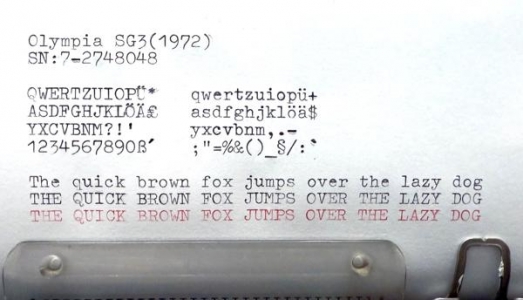 Olympia SG3(1972)
SN:7-2748048
QWERTZUIOPÜ* qwertzuiopü+
ASDFGHJKLÖÄ£ asdfghjklöä$
YXCVBNM?!' yxcvbnm,.-
1234567890ß´ ;"=%&()_§/:`
The quick brown fox jumps over the lazy dog
THE QUICK BROWN FOX JUMPS OVER THE LAZY DOG
THE QUICK BROWN FOX JUMPS OVER THE LAZY DOG